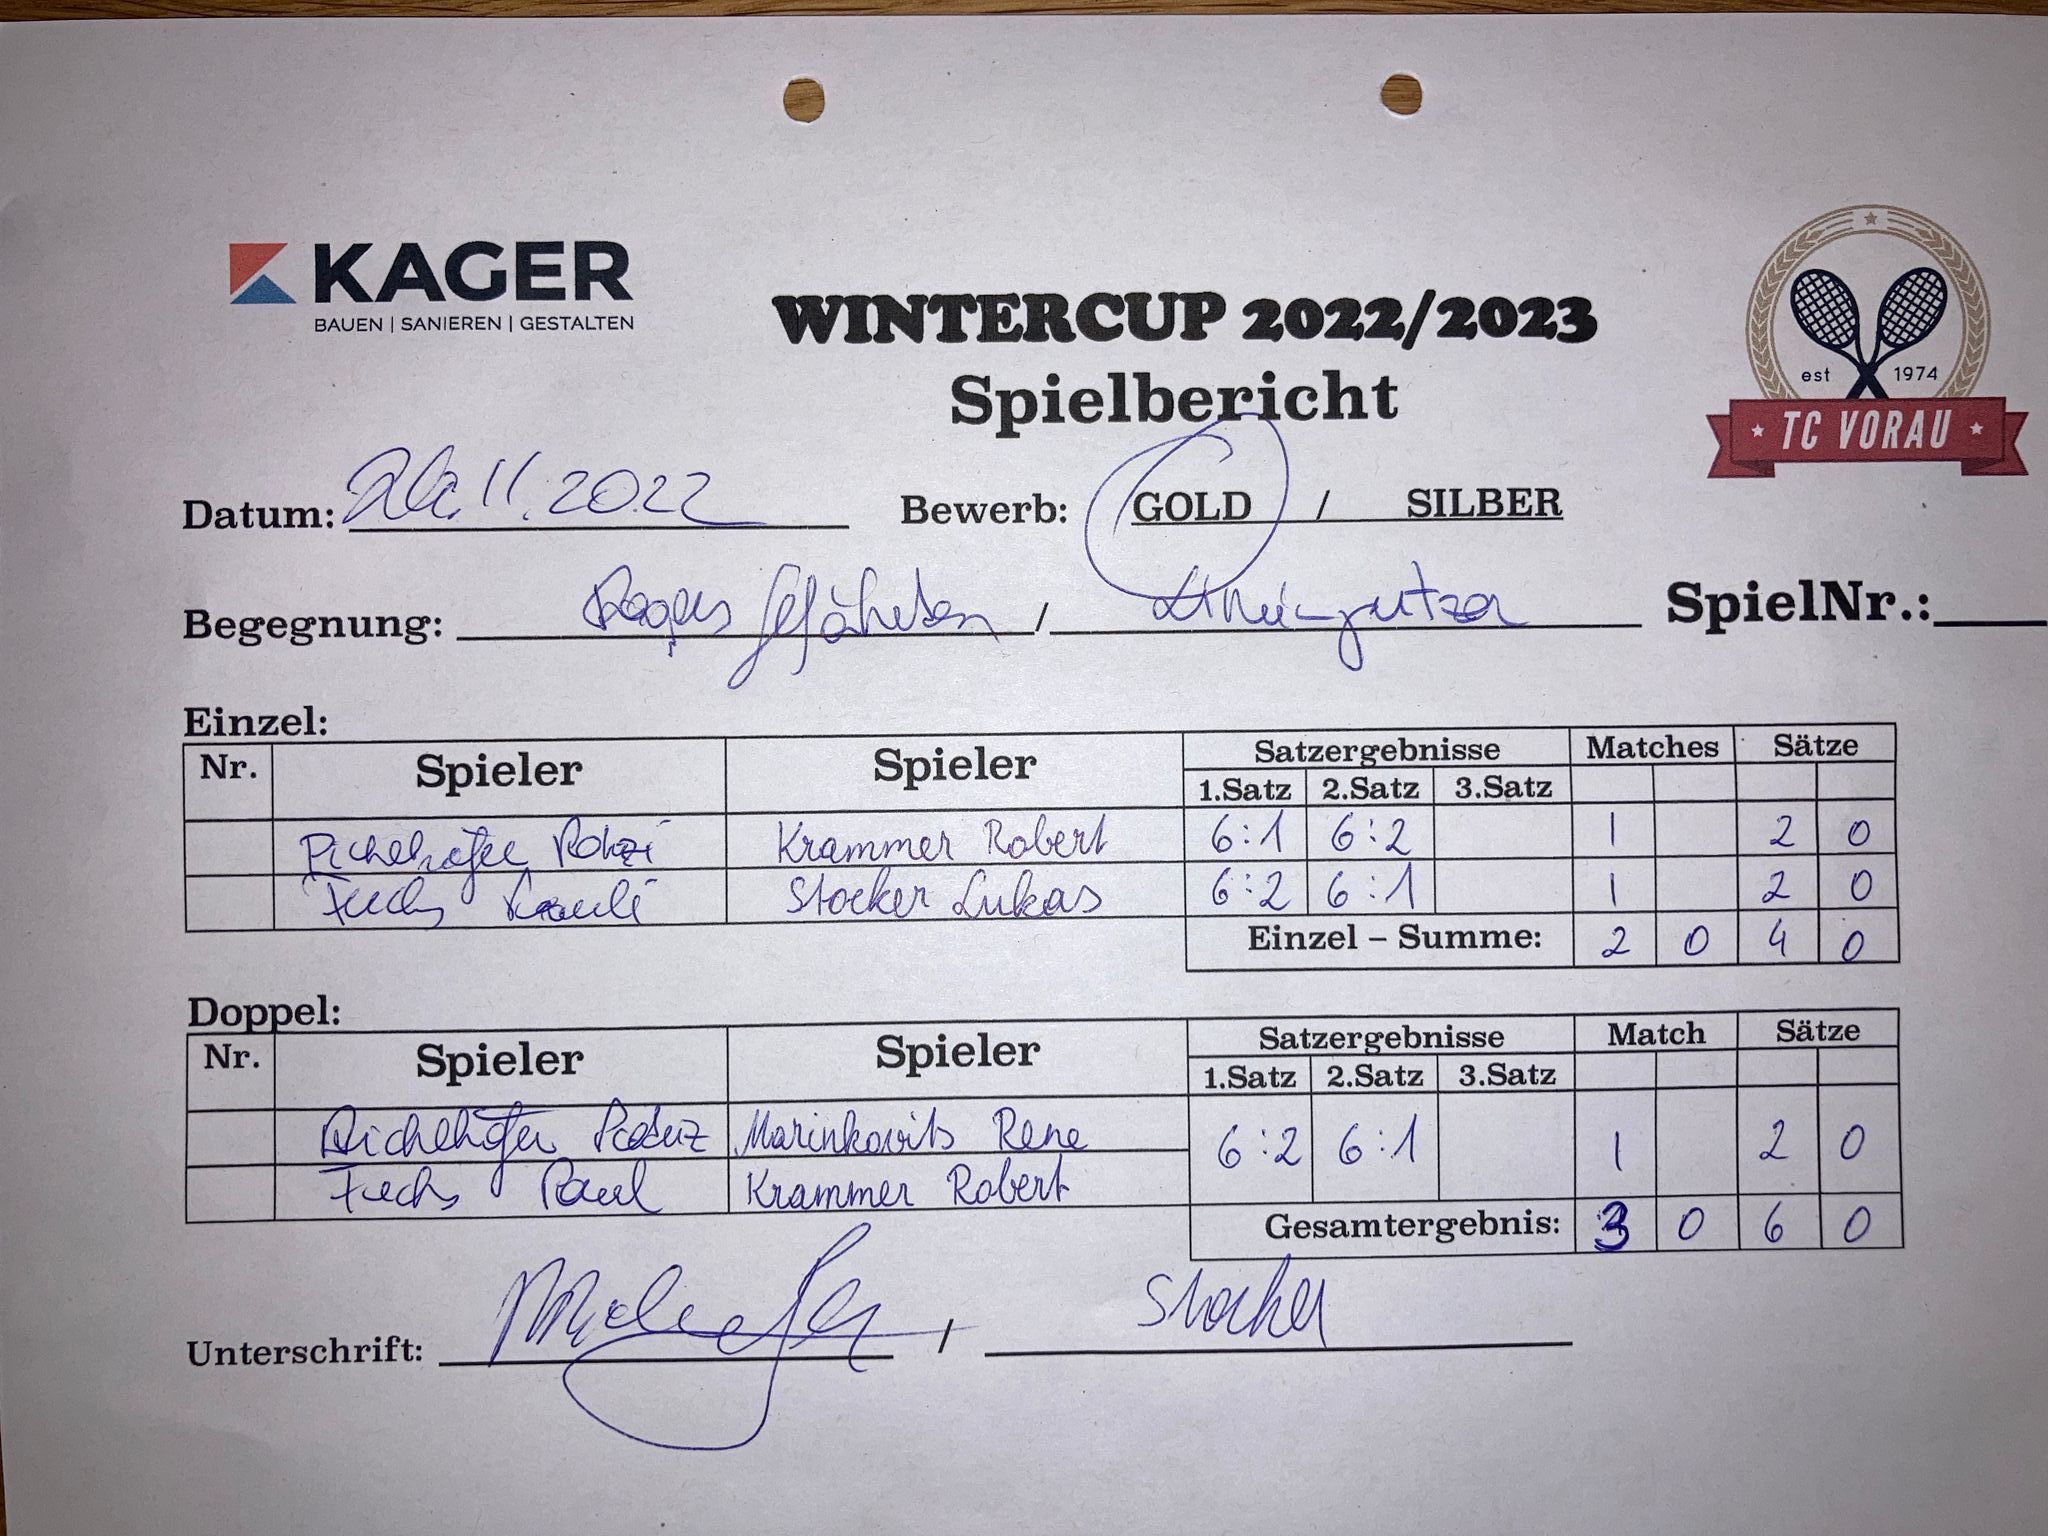 KAGER
BAUEN | SANIEREN | GESTALTEN
WINTERCUP 2022/2023
Spielbericht
est 1974
TC VORAU
Datum: 26.11.2022 Bewerb: GOLD / SILBER
Begegnung: Gefährten / SpielNr.:
Einzel:
Nr. Spieler Spieler Satzergebnisse Matches Sätze
1.Satz 2.Satz 3.Satz
Krammer Robert 6:1 6:2 1 2 0
Fuchs Stocker Lukas 6:2 6:1 1 2 0
Einzel – Summe: 2 0 4 0
Doppel:
Nr. Spieler Spieler Satzergebnisse Match Sätze
1.Satz 2.Satz 3.Satz
Marinkovits Rene 6:2 6:1 1 2 0
Fuchs Paul Krammer Robert
Gesamtergebnis: 3 0 6 0
Unterschrift: / Stocker